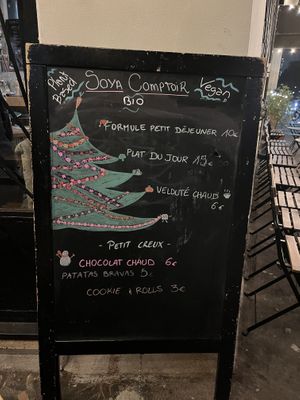 Plant Based
SOYA COMPTOIR
Vegan
BIO
FORMULE PETIT DÉJEUNER 10€
PLAT DU JOUR 15€
VELOUTÉ CHAUD
6€
- PETIT CREUX -
CHOCOLAT CHAUD 6€
PATATAS BRAVAS 5€
COOKIE & ROLLS 3€